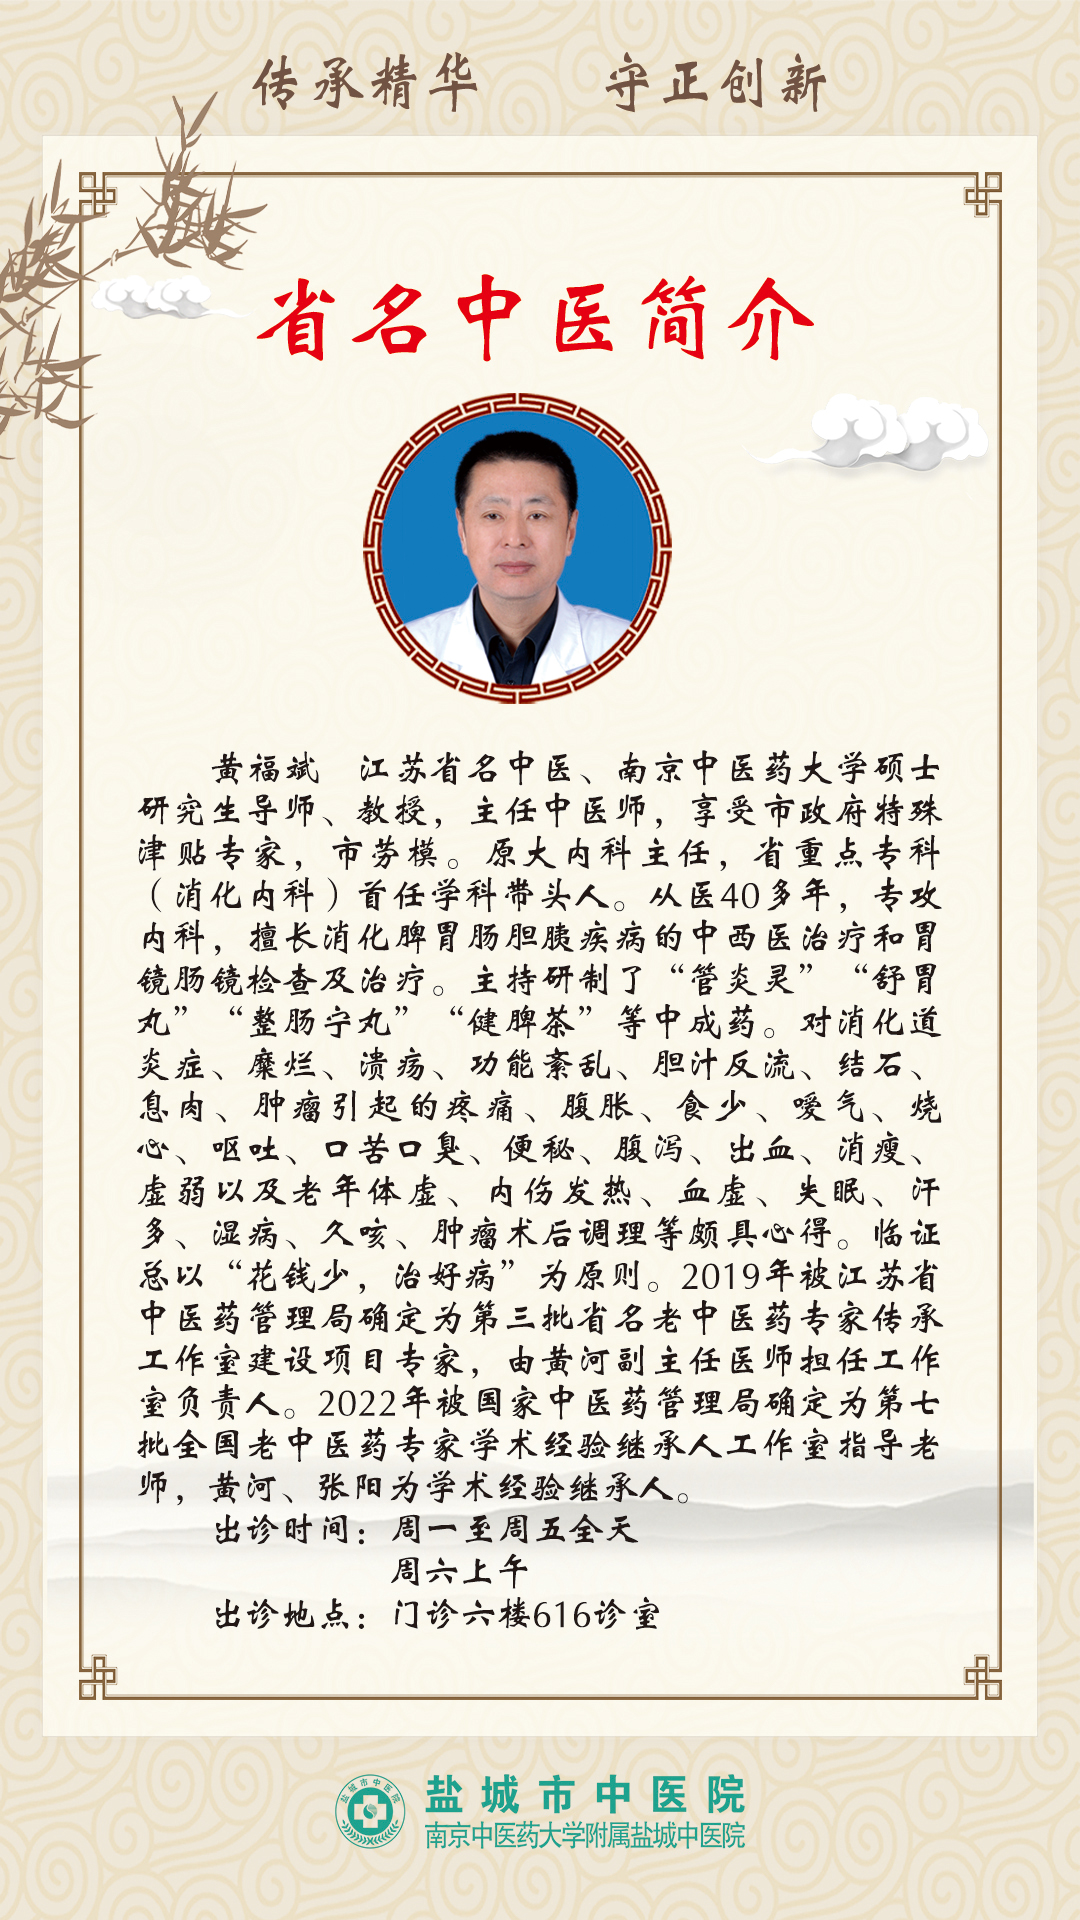 传承精华 守正创新
省名中医简介
黄福斌 江苏省名中医、南京中医药大学硕士
研究生导师、教授，主任中医师，享受市政府特殊
津贴专家，市劳模。原大内科主任，省重点专科
（消化内科）首任学科带头人。从医40多年，专攻
内科，擅长消化脾胃肠胆胰疾病的中西医治疗和胃
镜肠镜检查及治疗。主持研制了“管炎灵”“舒胃
丸”“整肠宁丸”“健脾茶”等中成药。对消化道
炎症、糜烂、溃疡、功能紊乱、胆汁反流、结石、
息肉、肿瘤引起的疼痛、腹胀、食少、嗳气、烧
心、呕吐、口苦口臭、便秘、腹泻、出血、消瘦、
虚弱以及老年体虚、内伤发热、血虚、失眠、汗
多、湿病、久咳、肿瘤术后调理等颇具心得。临证
总以“花钱少，治好病”为原则。2019年被江苏省
中医药管理局确定为第三批省名老中医药专家传承
工作室建设项目专家，由黄河副主任医师担任工作
室负责人。2022年被国家中医药管理局确定为第七
批全国老中医药专家学术经验继承人工作室指导老
师，黄河、张阳为学术经验继承人。
出诊时间：周一至周五全天
周六上午
出诊地点：门诊六楼616诊室
盐城市中医院
盐城市中医院
南京中医药大学附属盐城中医院